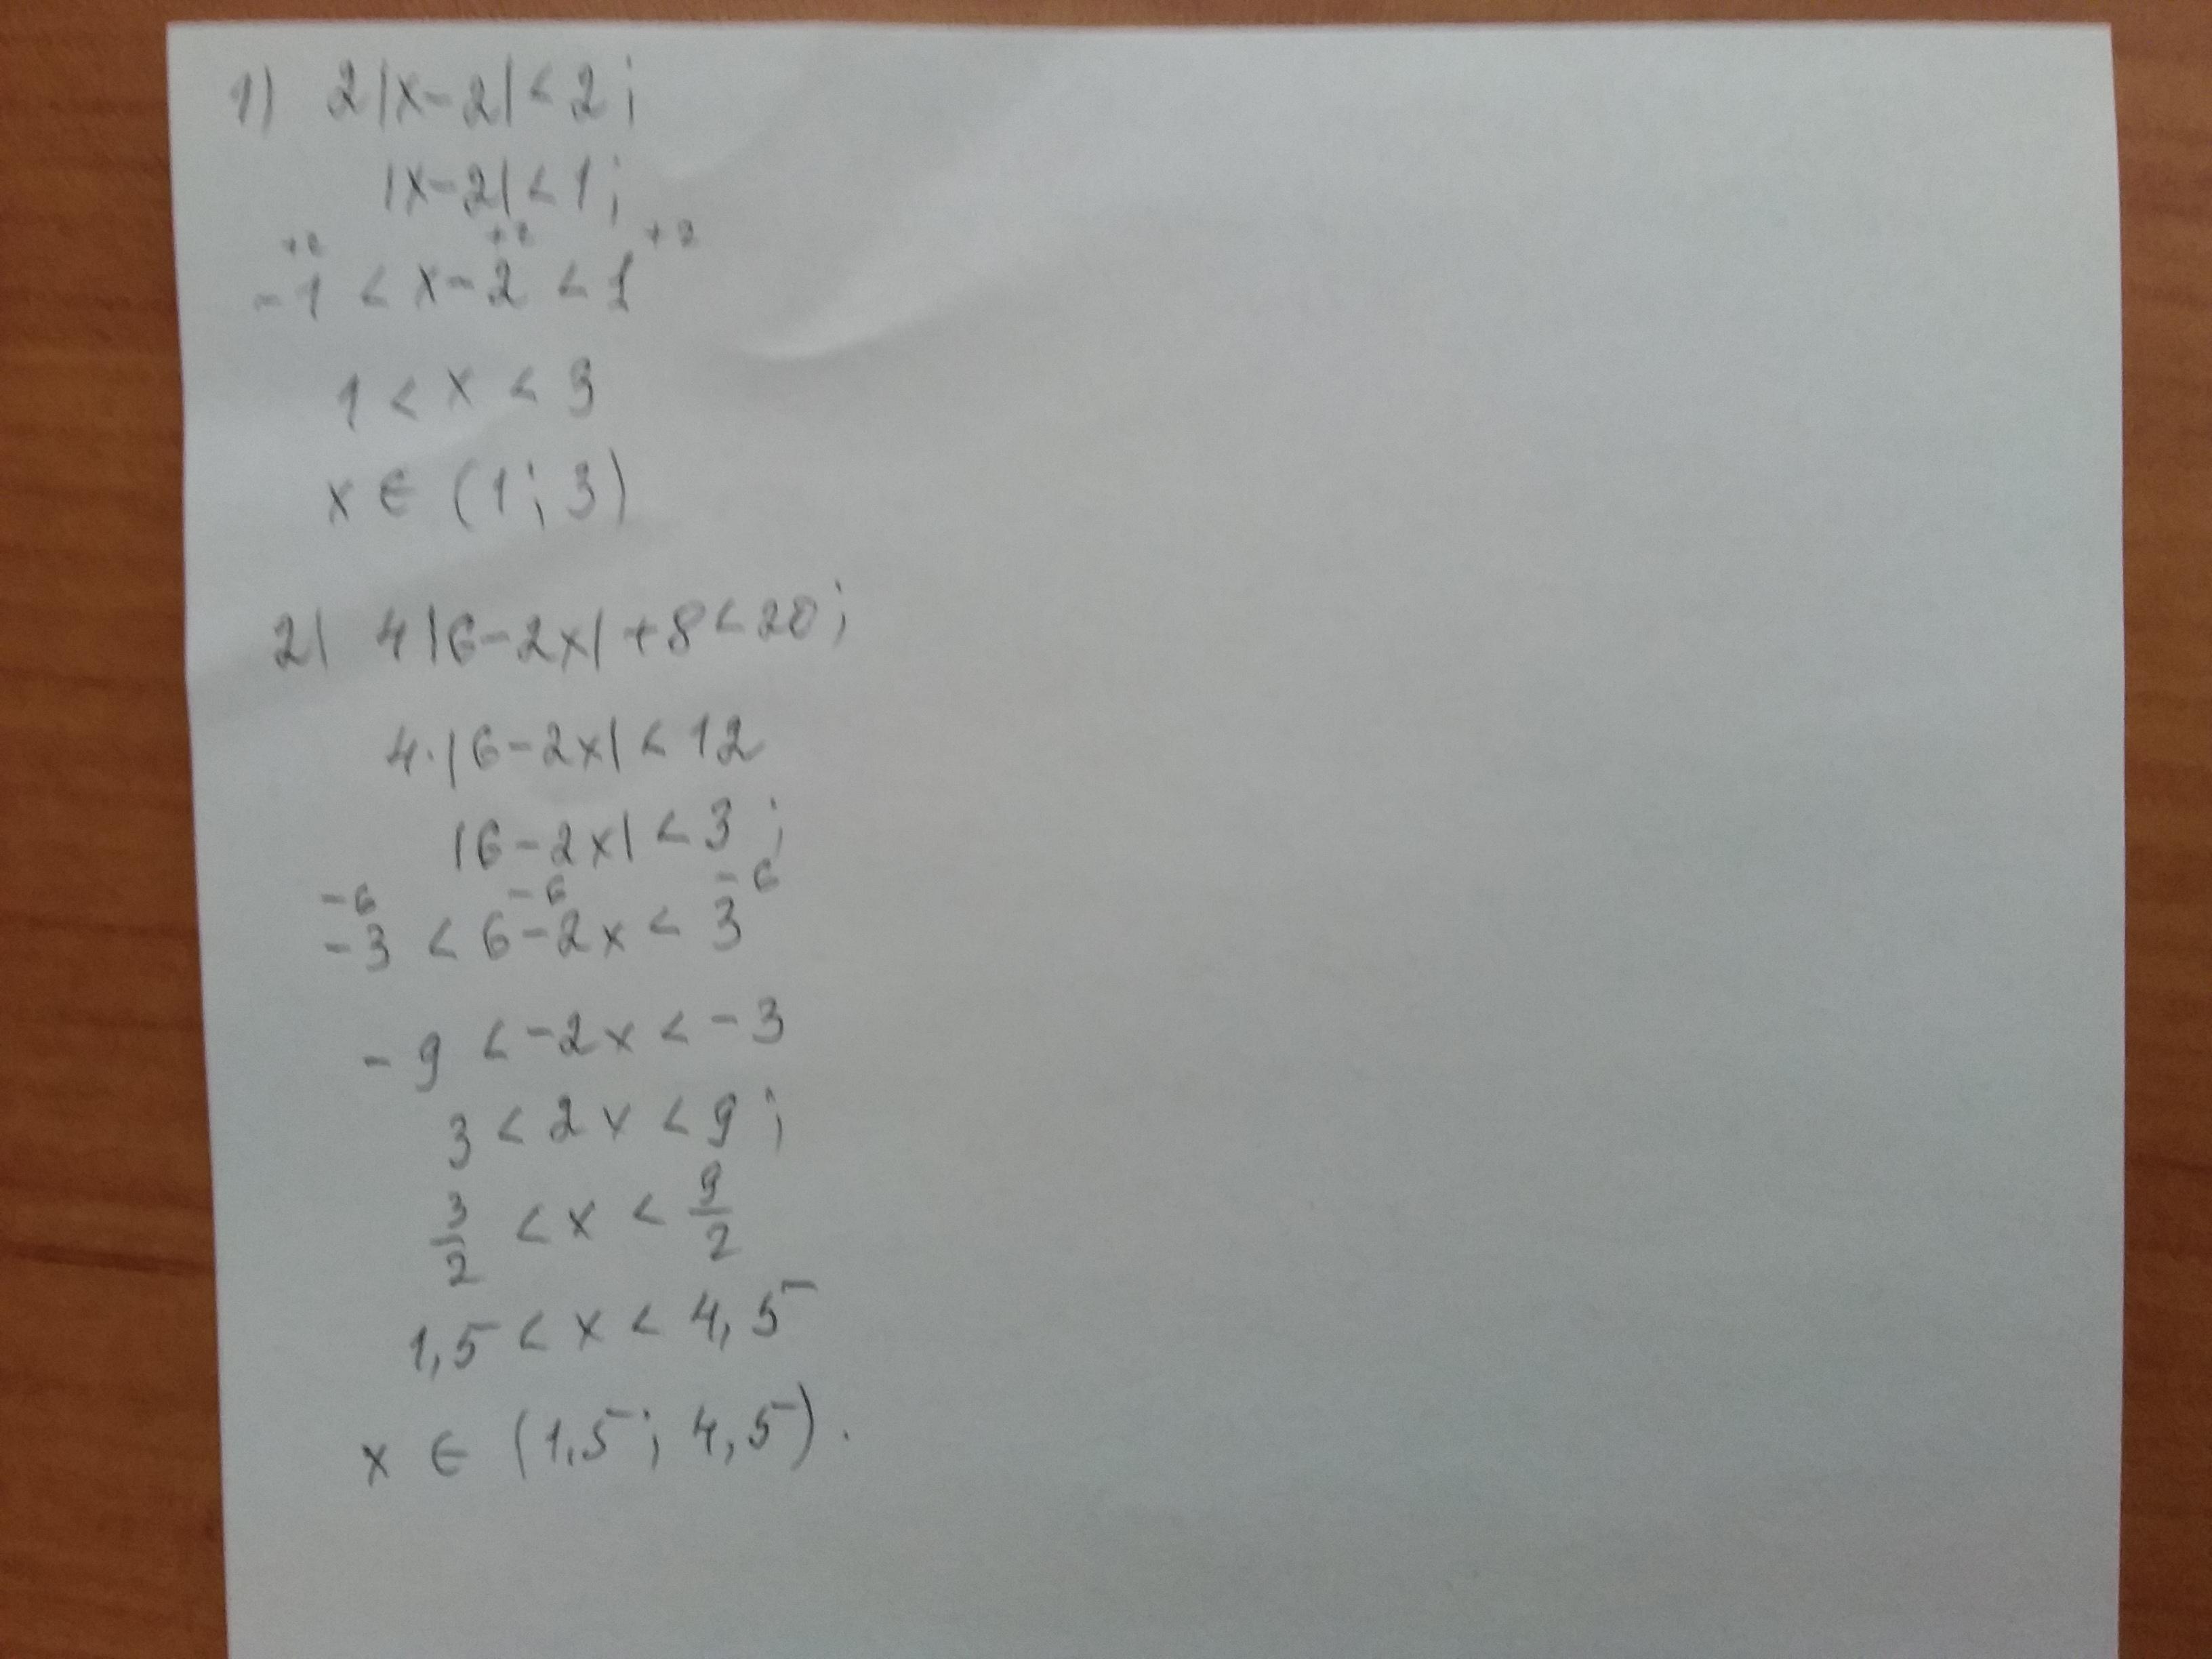 1) 2|x-2|<2;
|x-2|<1;
+2 +2 +2
-1 < x-2 < 1
1 < x < 3
x ∈ (1; 3)
2) 4|6-2x|+8<20;
4·|6-2x| < 12
|6-2x| < 3;
-6 -6 -6
-3 < 6-2x < 3
-9 < -2x < -3
3 < 2x < 9;
3/2 < x < 9/2
1,5 < x < 4,5
x ∈ (1,5; 4,5).